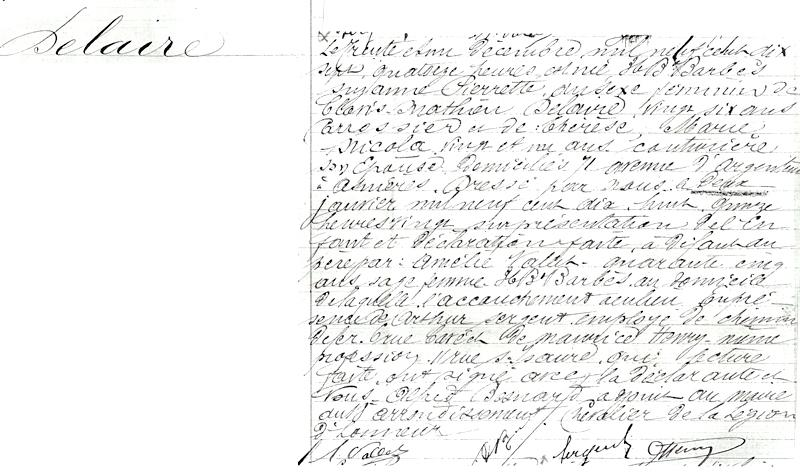 Delaire
Le trente et un Décembre mil neuf cent dix
sept, quatorze heures est née 36 Bd Barbès
Suzanne Pierrette, du sexe féminin de
Clovis Mathieu Delaire vingt six ans
et de Thérèse, Marie
Nicola vingt et un ans couturière
son épouse domiciliés 71 avenue d'Argenteuil
à Asnières. Dressé par nous le Deux
janvier mil neuf cent dix huit, onze
heures vingt sur présentation de l'En
fant et déclaration faite, à défaut du
père par: Amélie Vallet quarante cinq
ans, sage femme 36 Bd Barbès au domicile
de laquelle l'accouchement a eu lieu en pré-
sence de Arthur Sergent employé de chemin
de fer, rue et de Maurice Henry même
profession, rue qui, lecture
faite, ont signé avec la déclarante et
Nous, Alfred Besnard adjoint au maire
du arrondissement Chevalier de la Légion
d'honneur
A. Vallet Sergent Henry